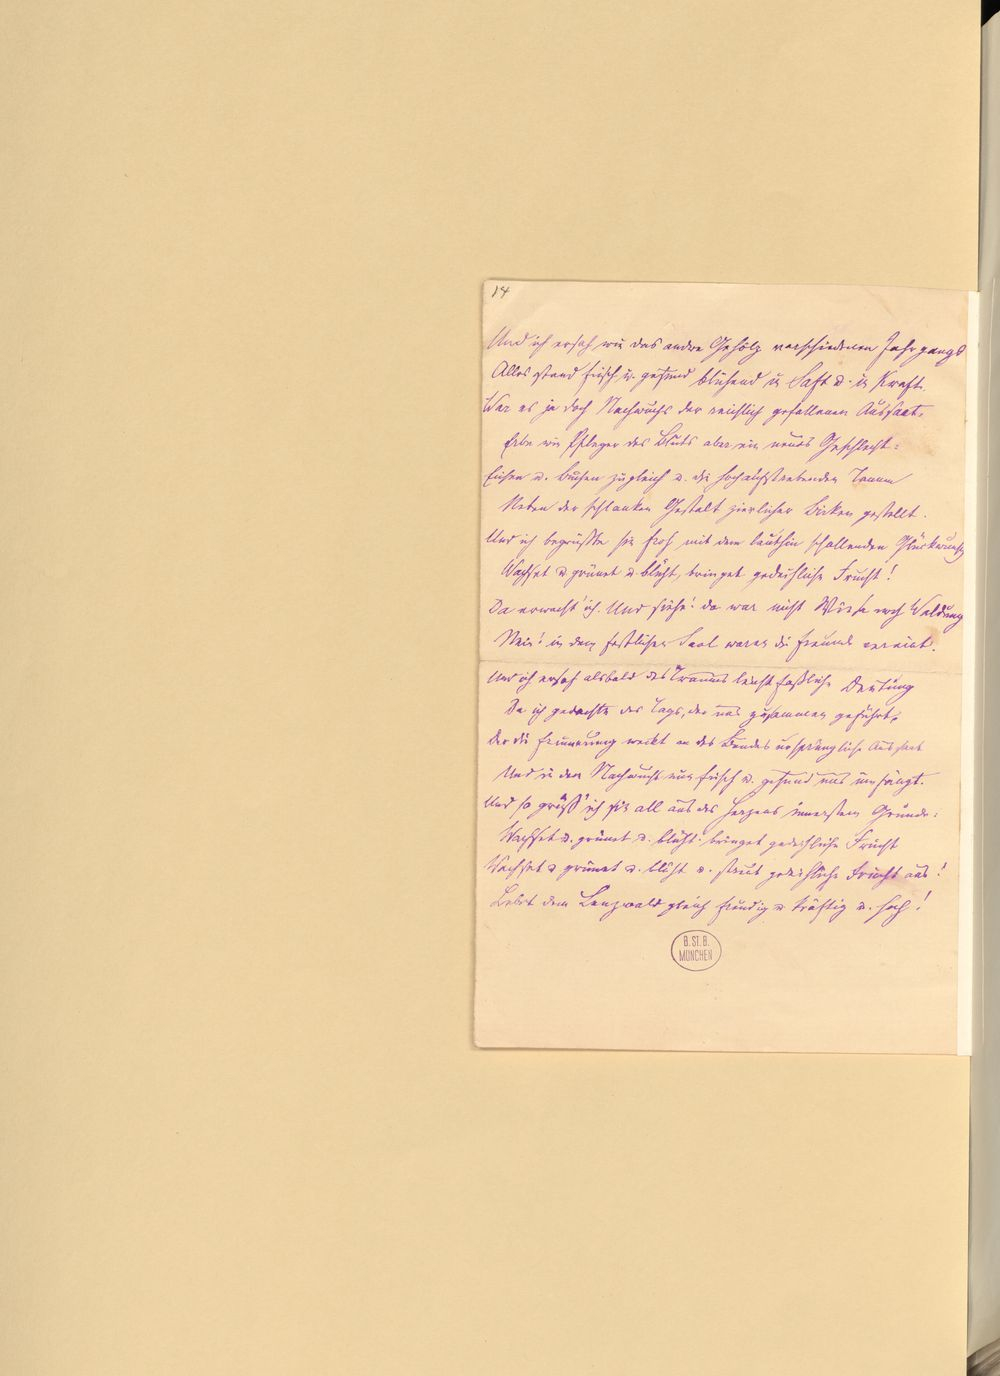 14
Und ich ersah wie das andre Gehölz verschiedenen Jahrgangs
Alles stand frisch u. gesund blühend in Saft u. in Kraft.
War es ja doch Nachwuchs der reichlich gefallenen Aussaat,
Erbe wie Pfleger des Bluts aber ein neues Geschlecht:
Eichen u. Buchen zugleich u. die hochaufstrebenden Tannen
Neben der schlanken Gestalt zierlicher Birken gestellt.
Und ich begrüßte sie froh mit dem lauthin schallenden Glückwunsch
Wachset u. grünet u. blüht, bringet gedeihliche Frucht!
Da erwacht' ich. Und siehe! da war nicht Wiese noch Waldung
Nein! in dem festlichen Saal waren die Freunde vereint.
Und ich ersah alsbald des Traums leicht faßliche Deutung
Da ich gedachte des Tags, der uns zusammen geführt,
Der die Erinnerung weckt an des Bundes ursprüngliche Aussaat
Und in dem Nachwuchs nun frisch u. gesund uns umfängt.
Und so grüß' ich sie all aus des Herzens innerstem Grunde:
Wachset u. grünet u. blüht bringet gedeihliche Frucht
Wachset u. grünet u. blüht u. streut gedeihliche Frucht aus!
Lebet dem Lenzwald gleich freudig u. kräftig u. hoch!
B. ST. B.
MÜNCHEN